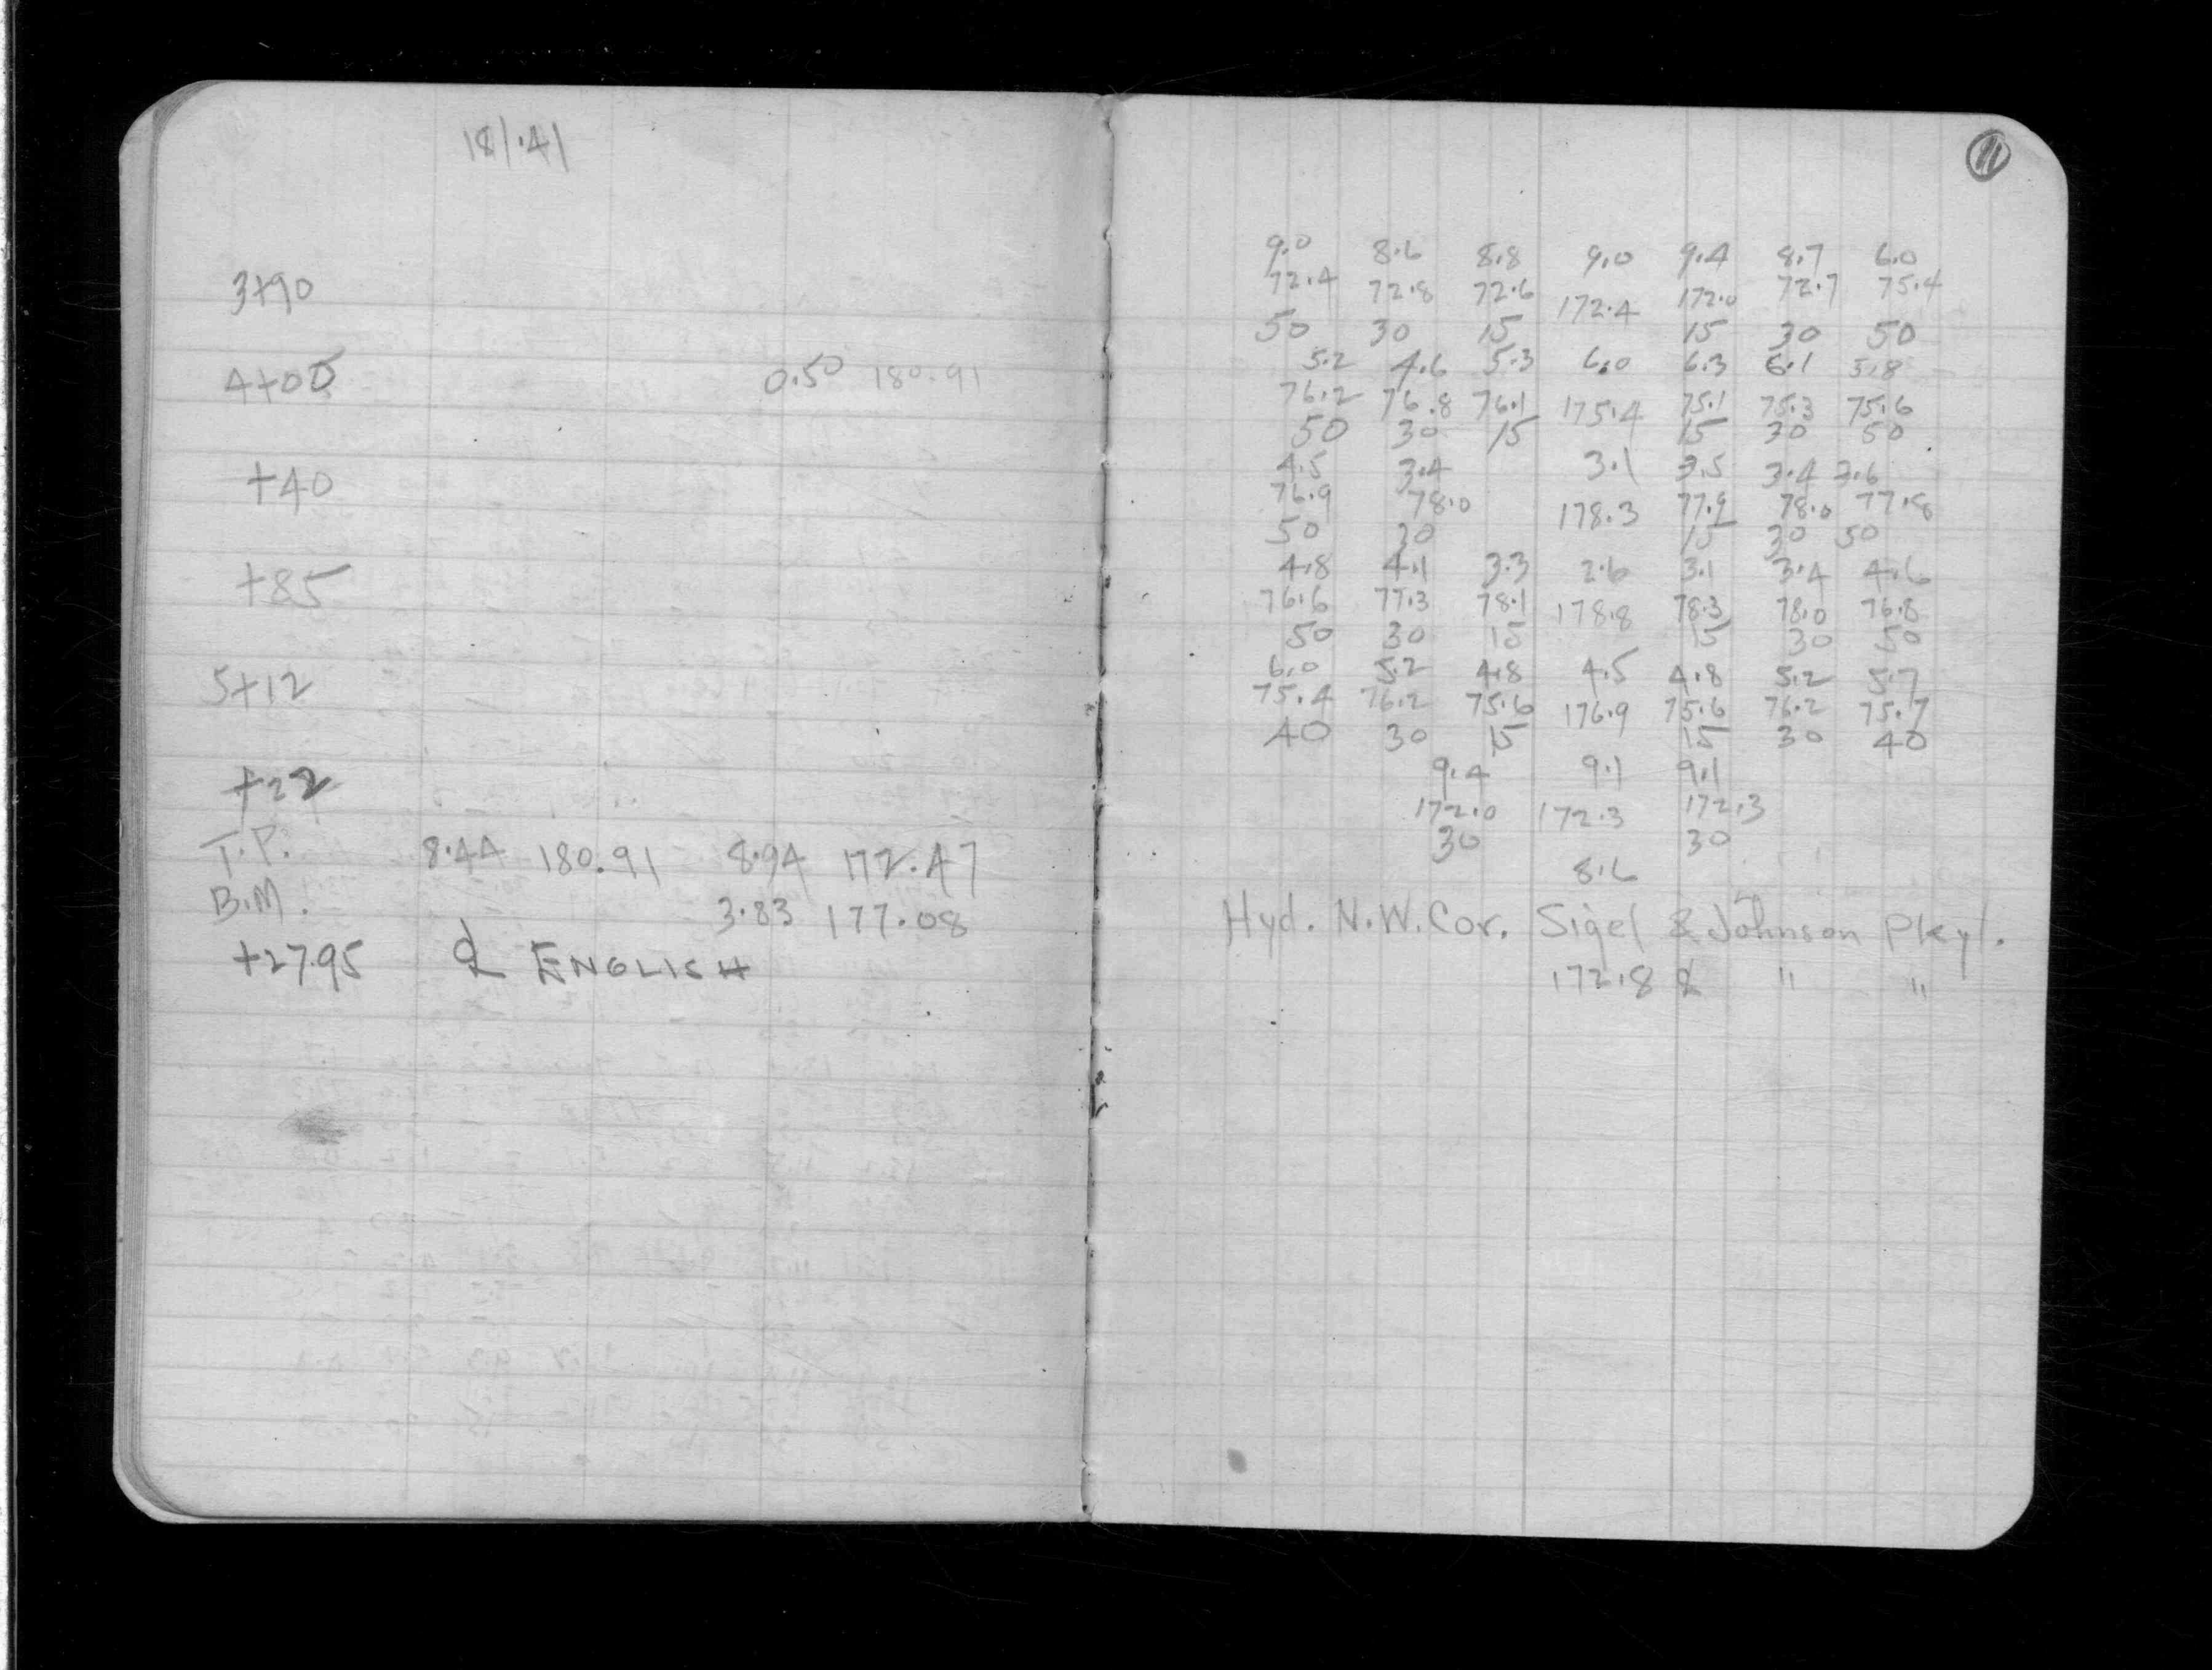 181.41
3+90
4+05 0.50 180.91
+40
+85
5+12
+22
T.P. 8.44 180.91 8.94 172.47
B.M. 3.83 177.08
+27.95 ℄ ENGLISH
11
9.0 8.6 8.8 9.0 9.4 8.7 6.0
72.4 72.8 72.6 172.4 172.0 72.7 75.4
50 30 15 15 30 50
5.2 4.6 5.3 6.0 6.3 6.1 5.8
76.2 76.8 76.1 175.4 75.1 75.3 75.6
50 30 15 15 30 50
4.5 3.4 3.1 3.5 3.4 3.6
76.9 78.0 178.3 77.9 78.0 77.8
50 30 15 30 50
4.8 4.1 3.3 2.6 3.1 3.4 4.6
76.6 77.3 78.1 178.8 78.3 78.0 76.8
50 30 15 15 30 50
6.0 5.2 4.8 4.5 4.8 5.2 5.7
75.4 76.2 75.6 176.9 75.6 76.2 75.7
40 30 15 15 30 40
9.4 9.1 9.1
172.0 172.3 172.3
30 30
8.6
Hyd. N.W. Cor. Sigel & Johnson Pkyl.
172.8 ℄ " "